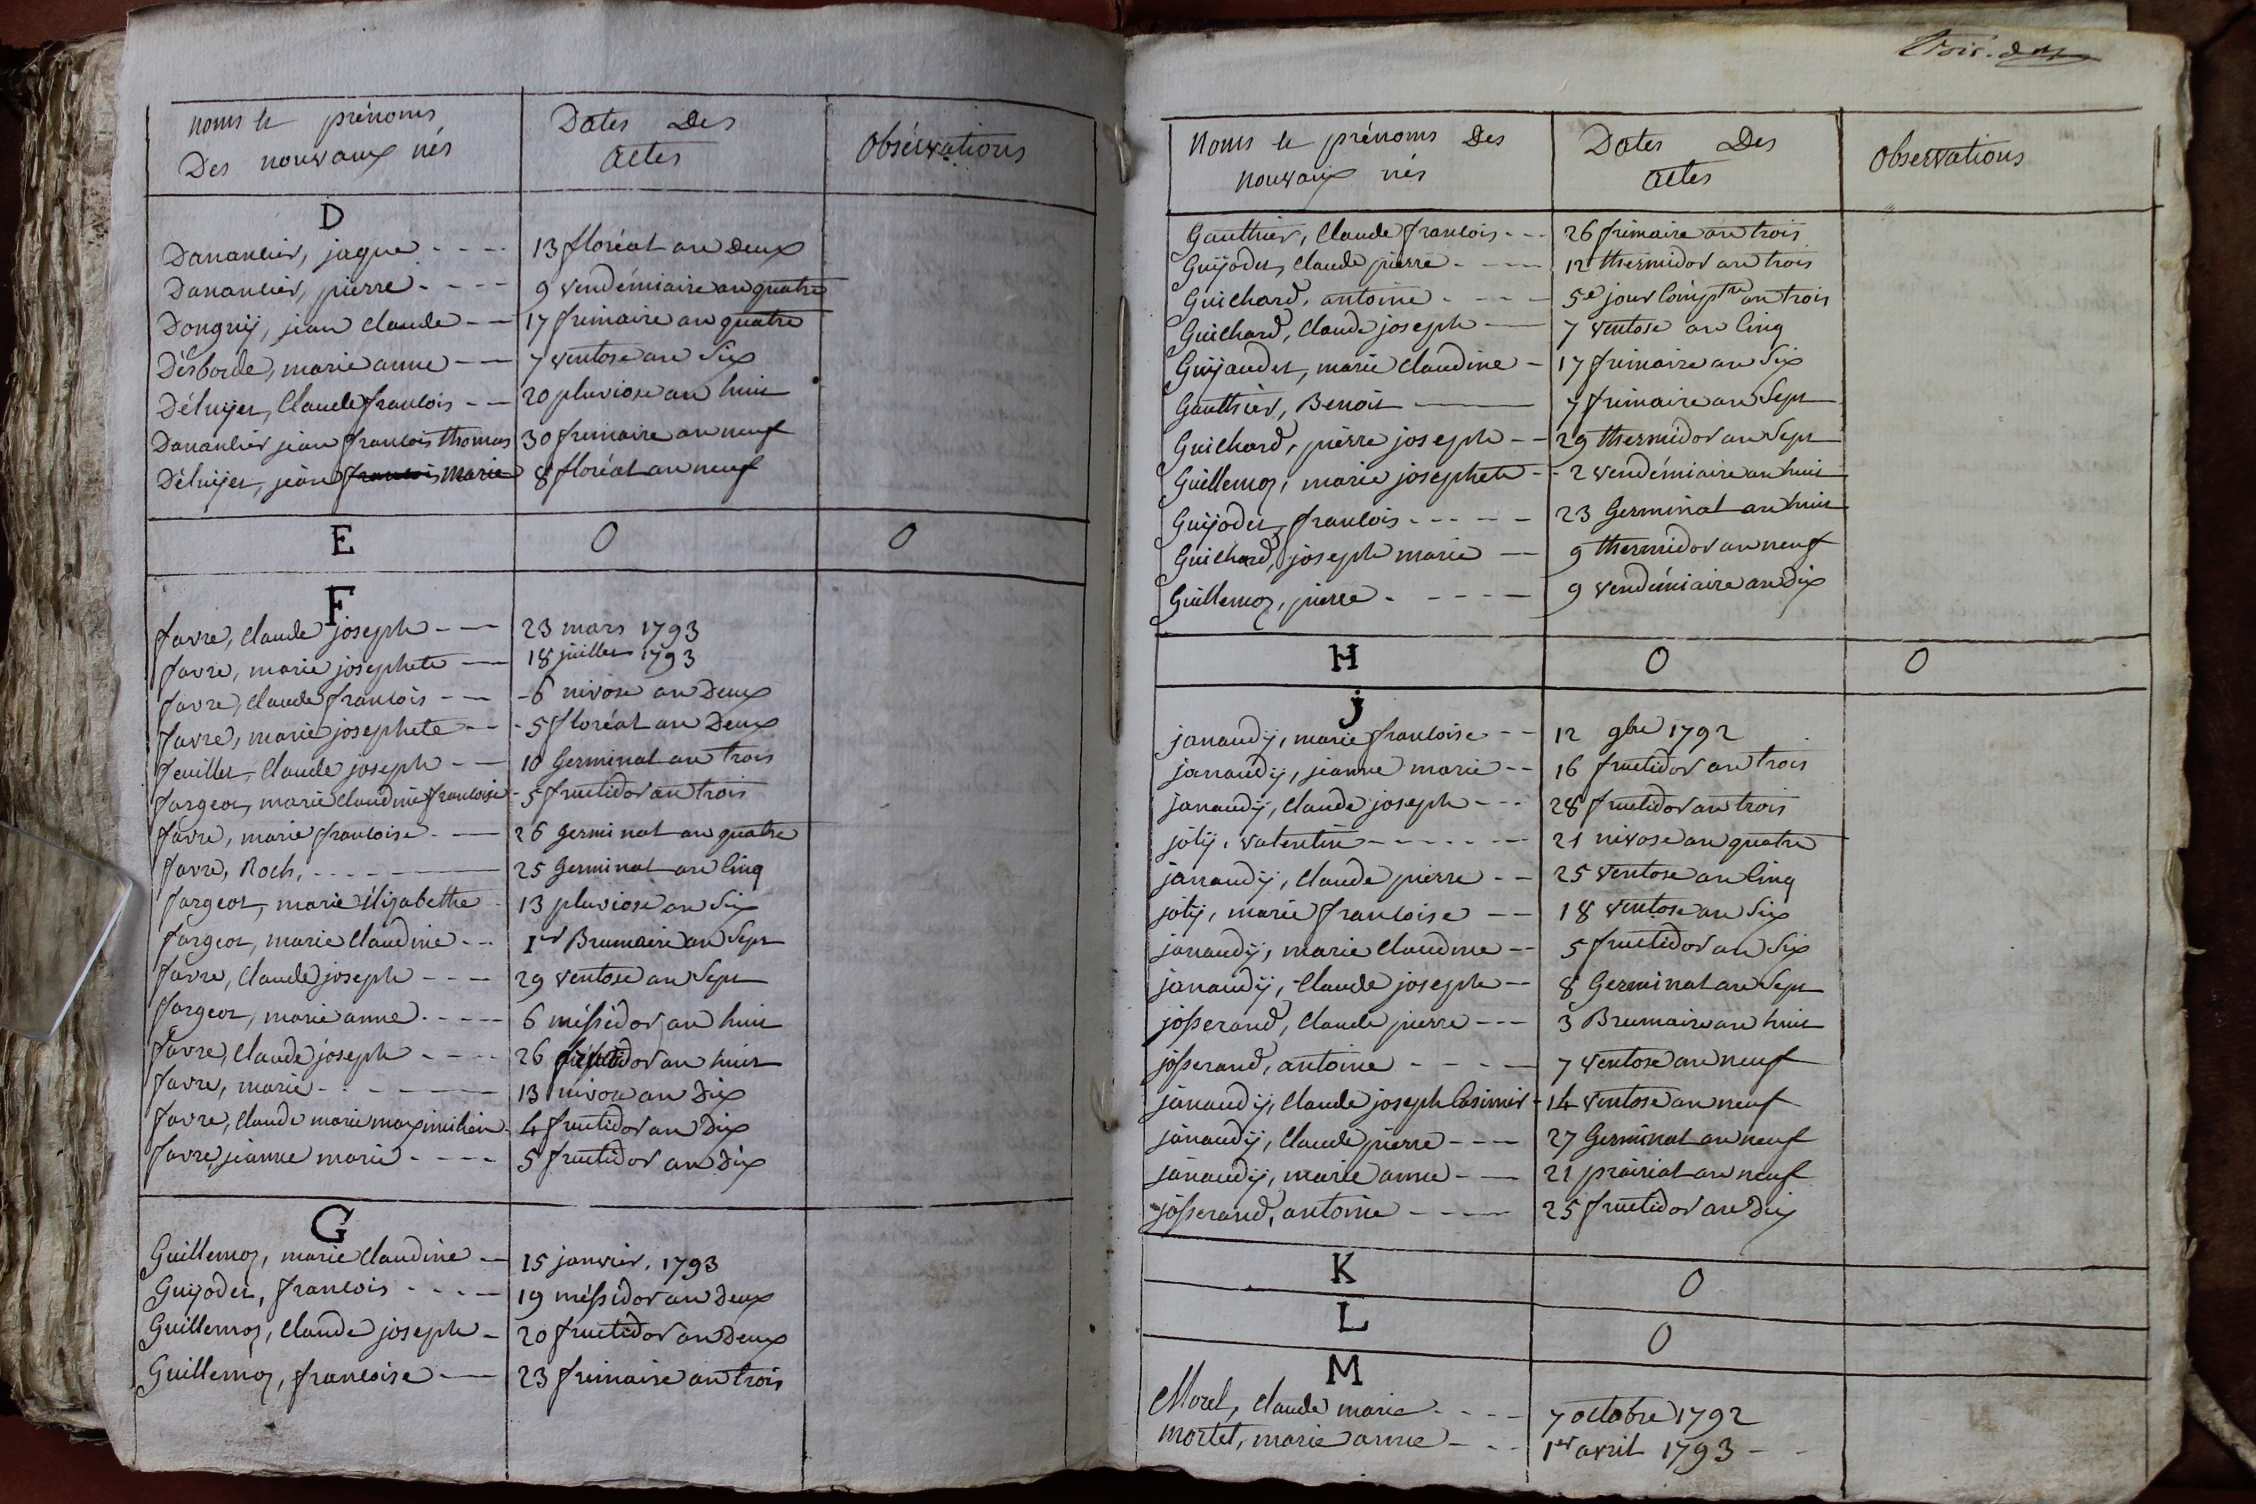 noms et prénoms
Des nouvaux nés
Dates Des
actes
Observations
D
Dananchier, jaque 13 floréal an Deux
Dananchier, pierre 9 vendémiaire an quatre
Donguy, jean claude 17 frimaire an quatre
Désborde, marie anne 7 ventose an Six
Claude francois 20 pluviose an huit
Dananchier jean francois thomas 30 frimaire an neuf
jean francois marie 8 floréal an neuf
E 0 0
F
favre, claude joseph 23 mars 1793
favre, marie josephete 18 juillet 1793
favre, claude francois 6 nivose an Deux
favre, marie josephete 5 floréal an Deux
feuillet, claude joseph 10 Germinal an trois
fargeot, marie claudine francoise 5 fructidor an trois
favre, marie francoise 26 germinal an quatre
favre, Roch, 25 Germinal an cinq
fargeot, marie élizabethe 13 pluviose an Six
fargeot, marie claudine 1er Brumaire an Sept
favre, claude joseph 29 ventose an Sept
fargeot, marie anne 6 méssidor an huit
favre, claude joseph 26 an huit
favre, marie 13 nivose an Dix
favre, claude marie maximilien 4 fructidor an Dix
favre, jeanne marie 5 fructidor an Dix
G
Guillemoz, marie claudine 15 janvier, 1793
Guyodet, francois 19 méssidor an Deux
Guillemoz, claude joseph 20 fructidor an Deux
Guillemoz, francoise 23 frimaire an trois
Noms et prénoms Des
nouvaux nés
Dates Des
actes
Observations
Gauthier, Claude francois 26 frimaire an trois
Guyodet, claude pierre 12 thermidor an trois
Guichard, antoine 5e jour Comptre an trois
Guichard, claude joseph 7 ventose an cinq
Guyaudet, marie claudine 17 frimaire an Six
Gauthier, Benoit 7 frimaire an Sept
Guichard, pierre joseph 29 thermidor an Sept
Guillemoz, marie josephete 2 vendémiaire an huit
Guyodet, francois 23 Germinal an huit
Guichard, joseph marie 9 thermidor an neuf
Guillemoz, pierre 9 vendémiaire an Dix
H 0 0
j
janaudy, marie francoise 12 9bre 1792
janaudy, jeanne marie 16 fructidor an trois
janaudy, claude joseph 28 fructidor an trois
joly, valentin 21 nivose an quatre
janaudy, claude pierre 25 ventose an cinq
joly, marie francoise 18 ventose an Six
janaudy, marie claudine 5 fructidor an Six
janaudy, claude joseph 8 Germinal an Sept
josserand, claude pierre 3 Brumaire an huit
josserand, antoine 7 ventose an neuf
janaudy, claude joseph Casimir 14 ventose an neuf
janaudy, claude pierre 27 Germinal an neuf
janaudy, marie anne 21 prairial an neuf
josserand, antoine 25 fructidor an Dix
K 0
L 0
M
Morel, claude marie 7 octobre 1792
mortel, marie anne 1er avril 1793